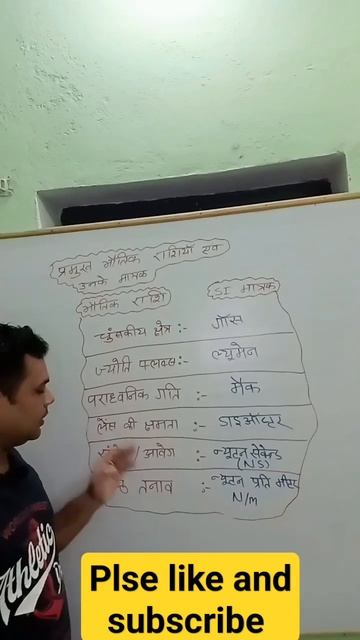 प्रमुख भौतिक राशियाँ एवं
उनके मात्रक
भौतिक राशि
SI मात्रक
चुंबकीय क्षेत्र :- गॉस
ज्योति फ्लक्स :- ल्यूमेन
पराध्वनिक गति :- मैक
लेंस की क्षमता :- डाइऑप्टर
/ आवेग :- न्यूटन सेकेन्ड
(NS)
तनाव :- न्यूटन प्रति मीटर
N/m
Athletic
Plse like and
subscribe